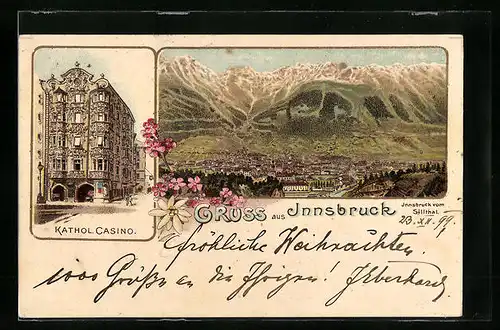 KATHOL. CASINO.
GRUSS AUS Innsbruck
Innsbruck vom
Sillthal.
23. XII. 99.
Fröhliche Weihnachten.
1000 Grüße an die Ihrigen! J Eberhard